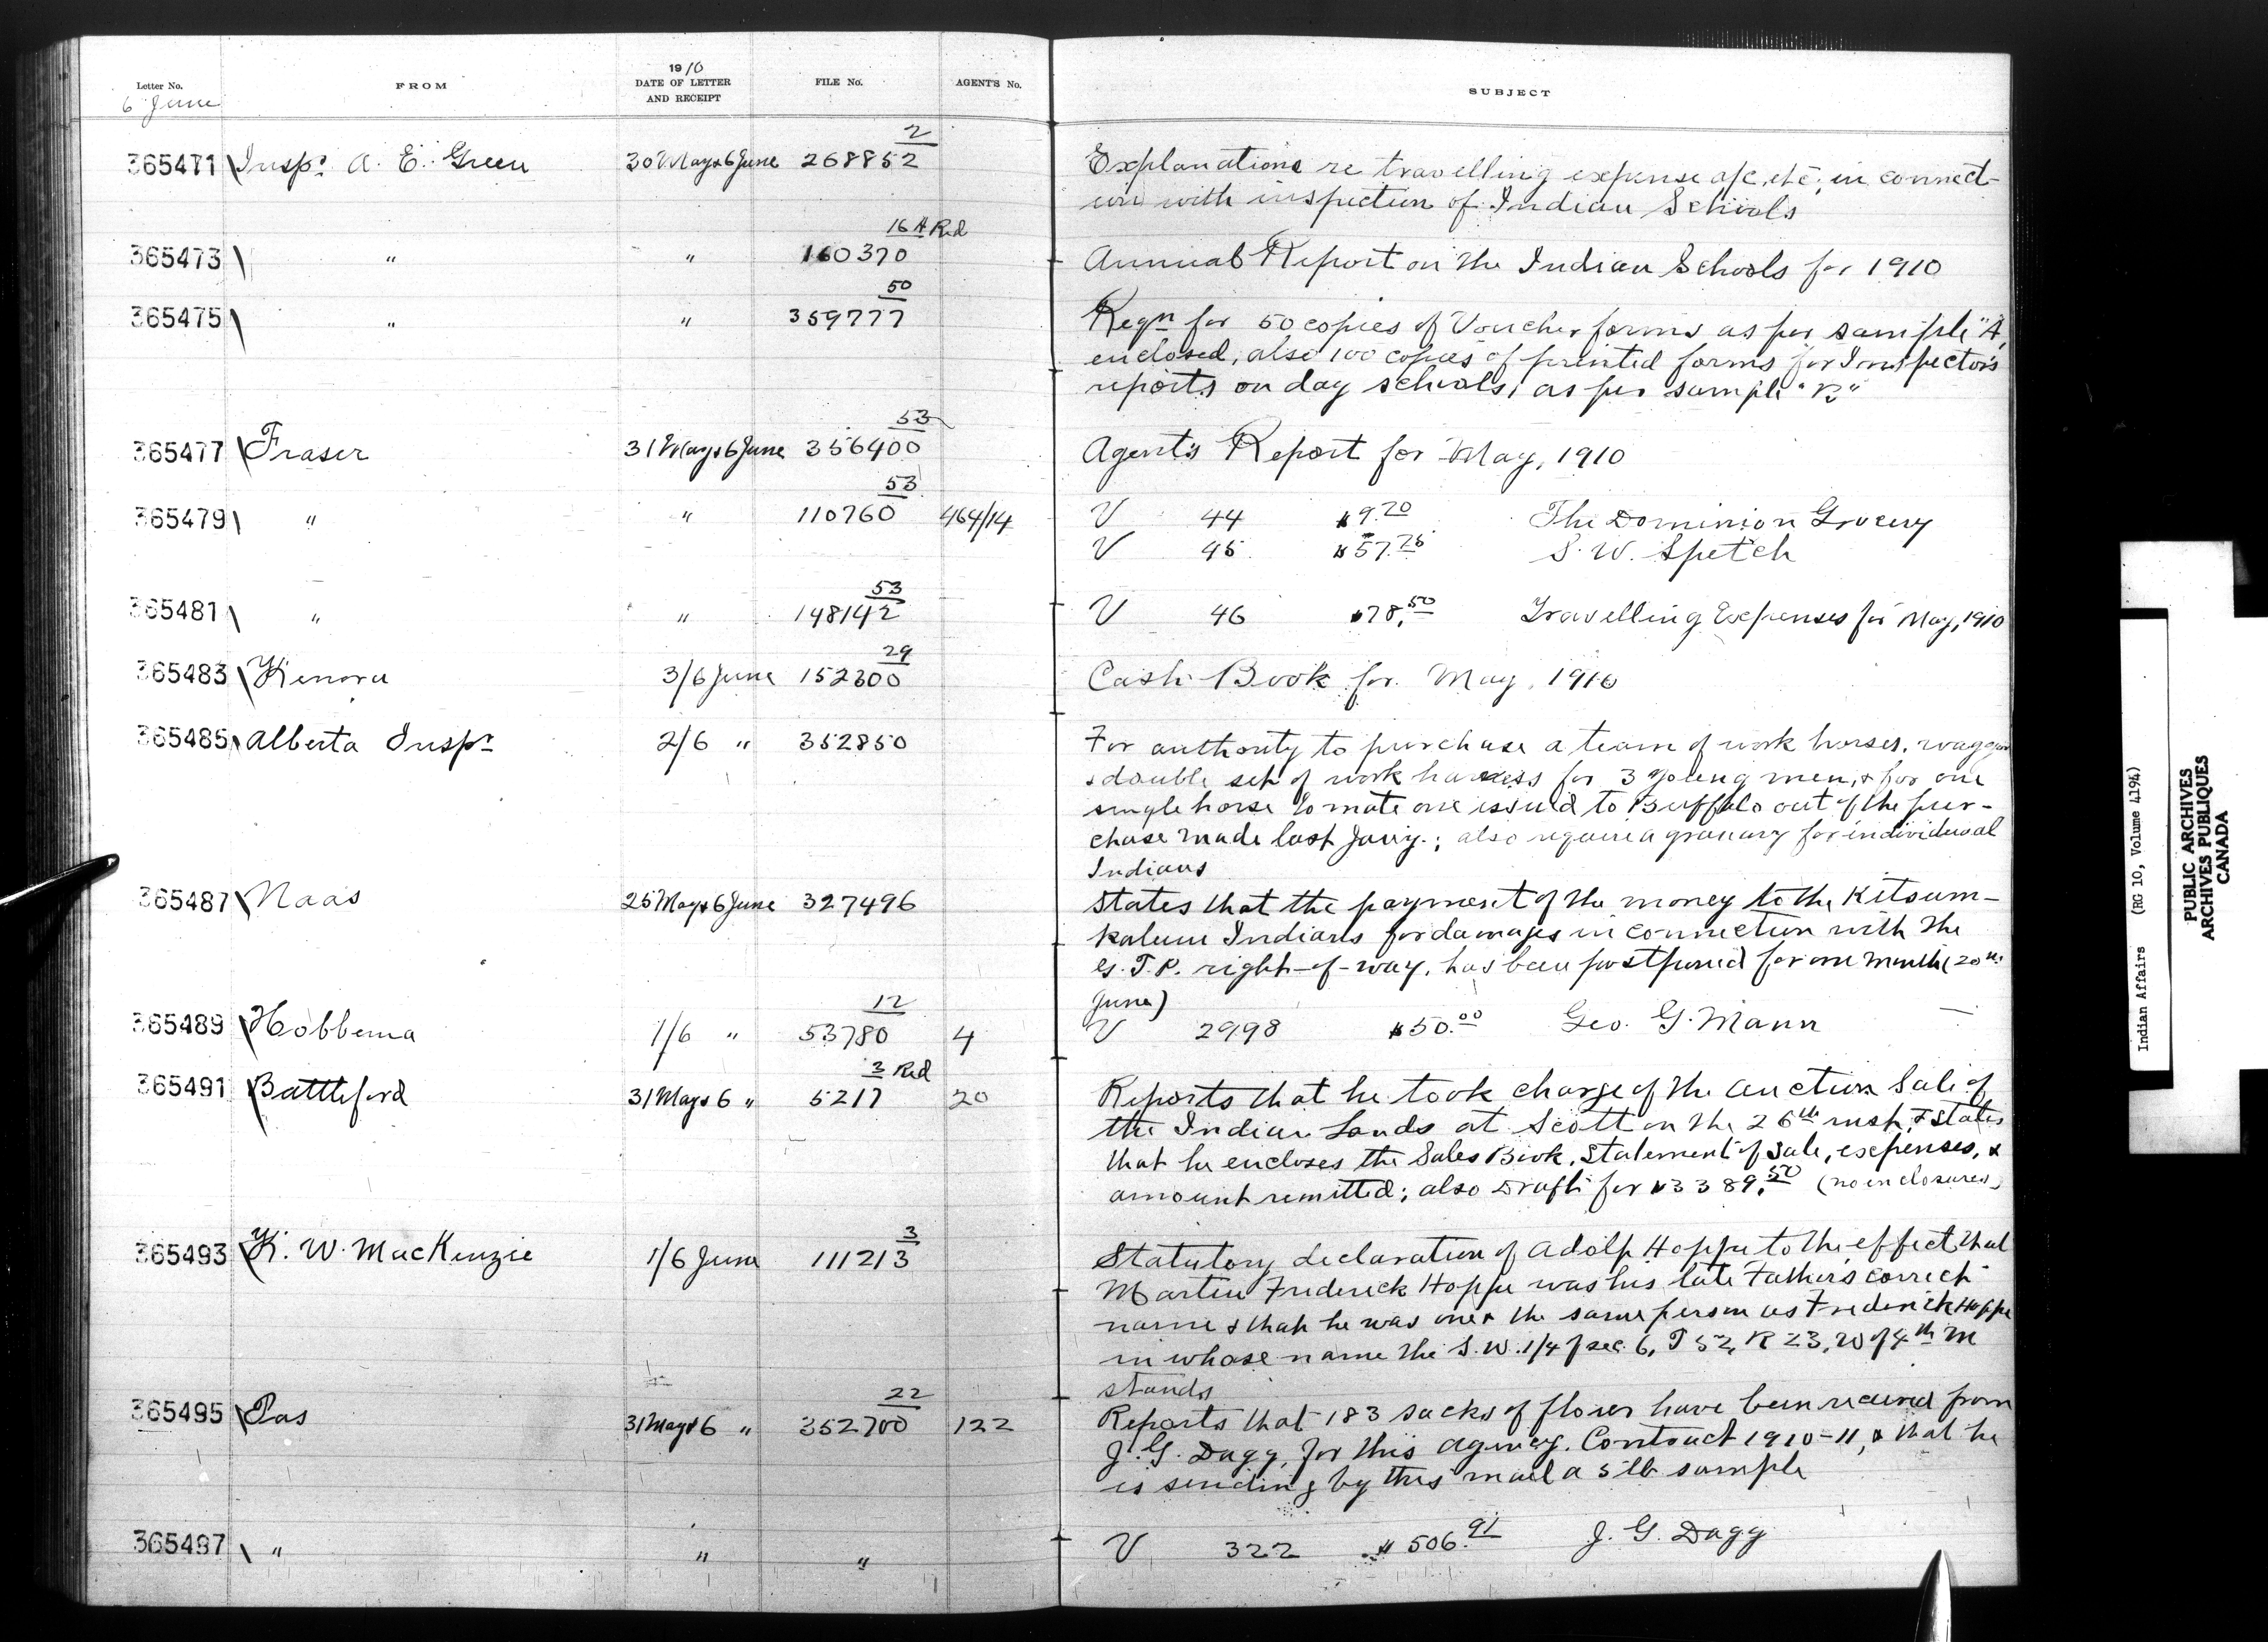 Letter No. FROM 1910 DATE OF LETTER AND RECEIPT FILE No. AGENT'S No. SUBJECT
6 June
365471 Inspr. A. E. Green 30 May & 6 June 268852 2 Explanations re travelling expense a/c, etc, in connect-
ion with inspection of Indian Schools
365473 " " 160370 16A Red Annual Report on the Indian Schools for 1910
365475 " " 359777 50 Reqn for 50 copies of Voucher forms as per sample "A,
enclosed, also 100 copies of printed forms for Inspector's
reports on day schools, as per sample "B"
365477 Fraser 31 May & 6 June 356400 53 Agent's Report for May, 1910
365479 " " 110760 53 464/14 V 44 $9.20 The Dominion Grocery
V 45 $57.75 S. W. Spetch
365481 " " 148142 53 V 46 $78.50 Travelling Expenses for May, 1910
365483 Kenora 3/6 June 152300 29 Cash Book for May, 1910
365485 Alberta Inspr 2/6 " 352850 For authority to purchase a team of work horses, waggon
& double set of work harness for 3 young men, & for one
single horse to mate one issued to Buffalo out of the pur-
chase made last Jany.; also require a granary for individual
Indians
365487 Naas 25 May & 6 June 327496 States that the payment of the money to the Kitsum-
kalum Indians for damages in connection with the
G. T. P. right-of-way, has been postponed for one month (20th
June)
365489 Hobbema 1/6 " 53780 12 4 V 2998 $50.00 Geo. G. Mann
365491 Battleford 31 May & 6 " 5217 3 Red 20 Reports that he took charge of the auction Sale of
the Indian Lands at Scott on the 26th & states
that he encloses the Sales Book, Statement of Sale, expenses, &
amount remitted; also Draft for $3389.50 (no enclosures)
365493 K. W. MacKenzie 1/6 June 111213 3 Statutory declaration of Adolp Hoppe to the effect that
Martin Frederick Hoppe was his late Father's correct
name & that he was one & the same person as Frederick Hoppe
in whose name the S. W. 1/4 of sec. 6, T 52, R 23, W of 4th M
stands
365495 Pas 31 May & 6 " 352700 22 122 Reports that 183 sacks of flour have been received from
J. G. Dagg, for this agency. Contract 1910-11, & that he
is sending by this mail a 5 lb sample
365497 " " " V 322 $506.91 J. G. Dagg
Indian Affairs (RG 10, Volume 4194)
PUBLIC ARCHIVES
ARCHIVES PUBLIQUES
CANADA